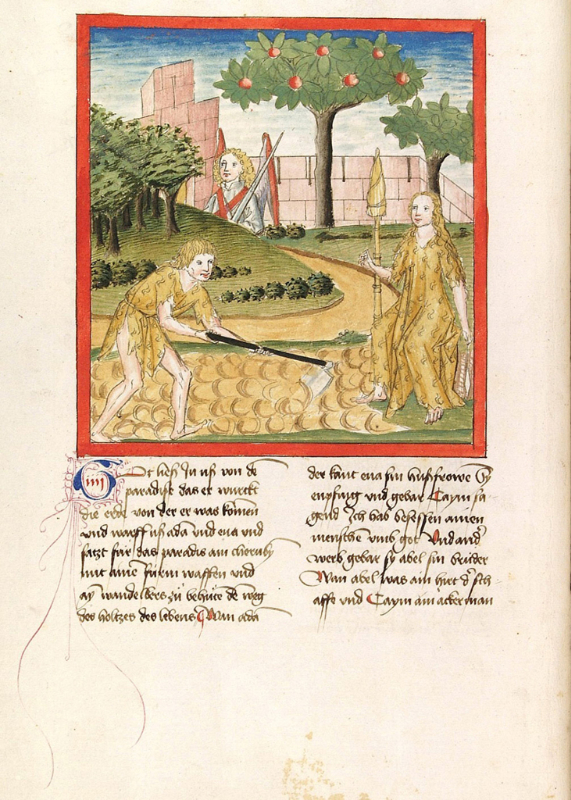 iiij
Got ließ In uß von dē
paradiß das er wurckt
die erde von der er was komen
vnd warff uß adā vnd eua vnd
satzt für das paradis ain cherubī
mit ainē fürim waffen vnd
ay wandelbers zu behüte dē weg
des holtzes des lebens Wan ada
der kant eua sin hußfrowe Sy
enpfieng vnd gebar Caym sa
gend Ich hab besessen ainen
menschen vmb got Vnd and
werb gebar sy abel sin bruder
Wan abel was ain hirt d sch
affe vnd Caym ain ackerman